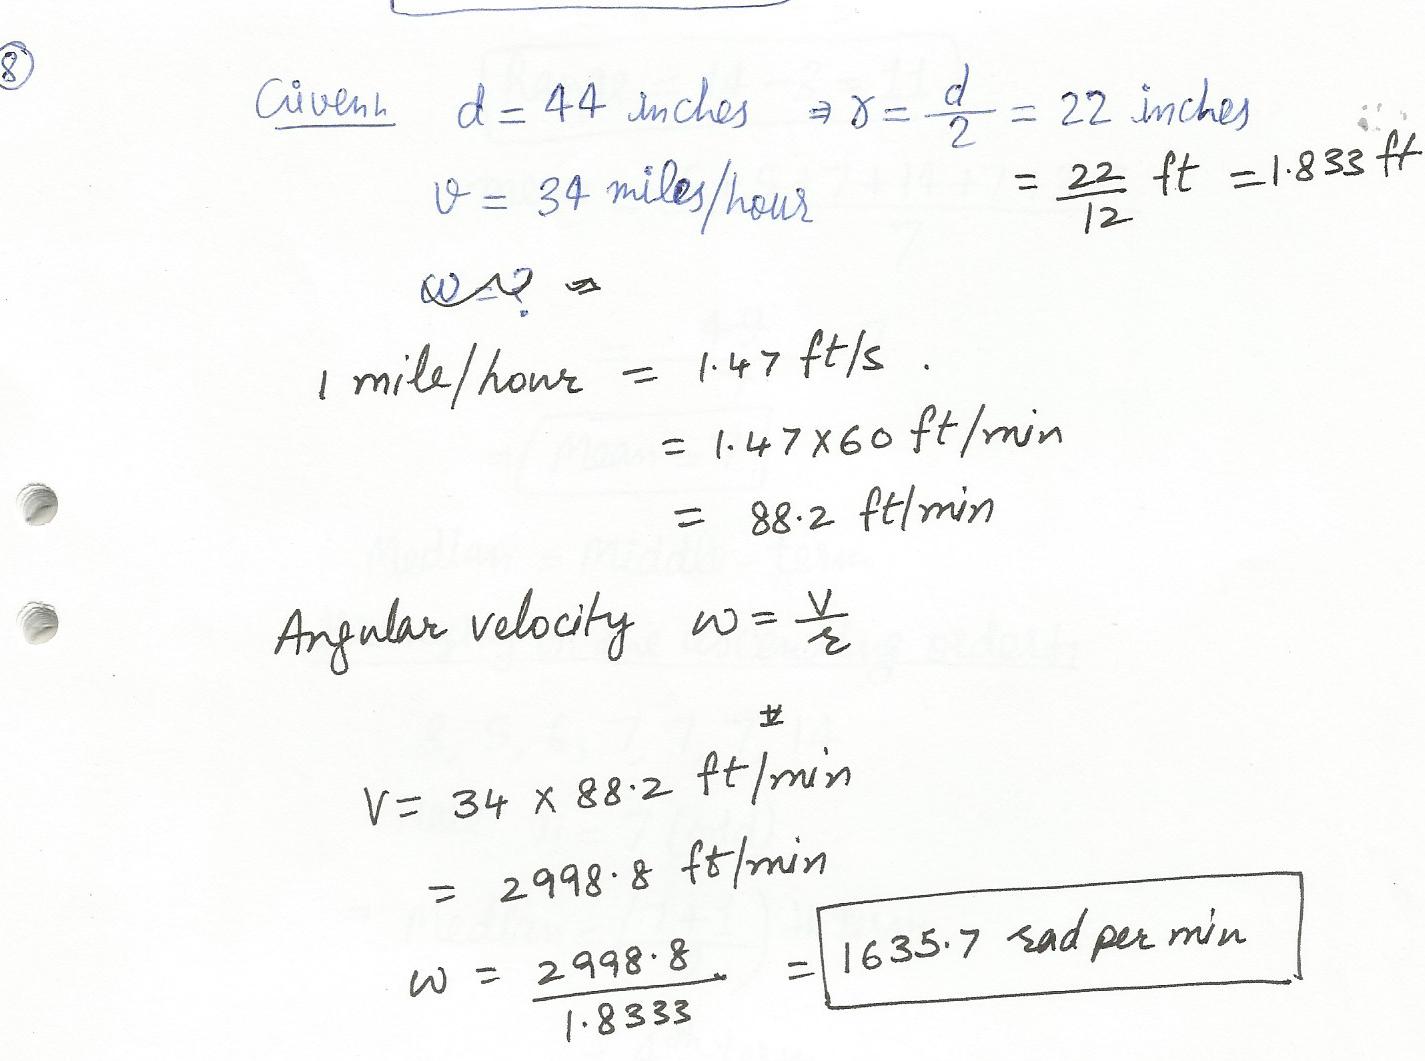 8
Given d = 44 inches ⇒ r = d/2 = 22 inches
v = 34 miles/hour = 22/12 ft = 1.833 ft
ω = ?
1 mile/hour = 1.47 ft/s .
= 1.47 x 60 ft/min
= 88.2 ft/min
Angular velocity ω = v/r
V = 34 x 88.2 ft/min
= 2998.8 ft/min
ω = 2998.8/1.8333 = 1635.7 rad per min